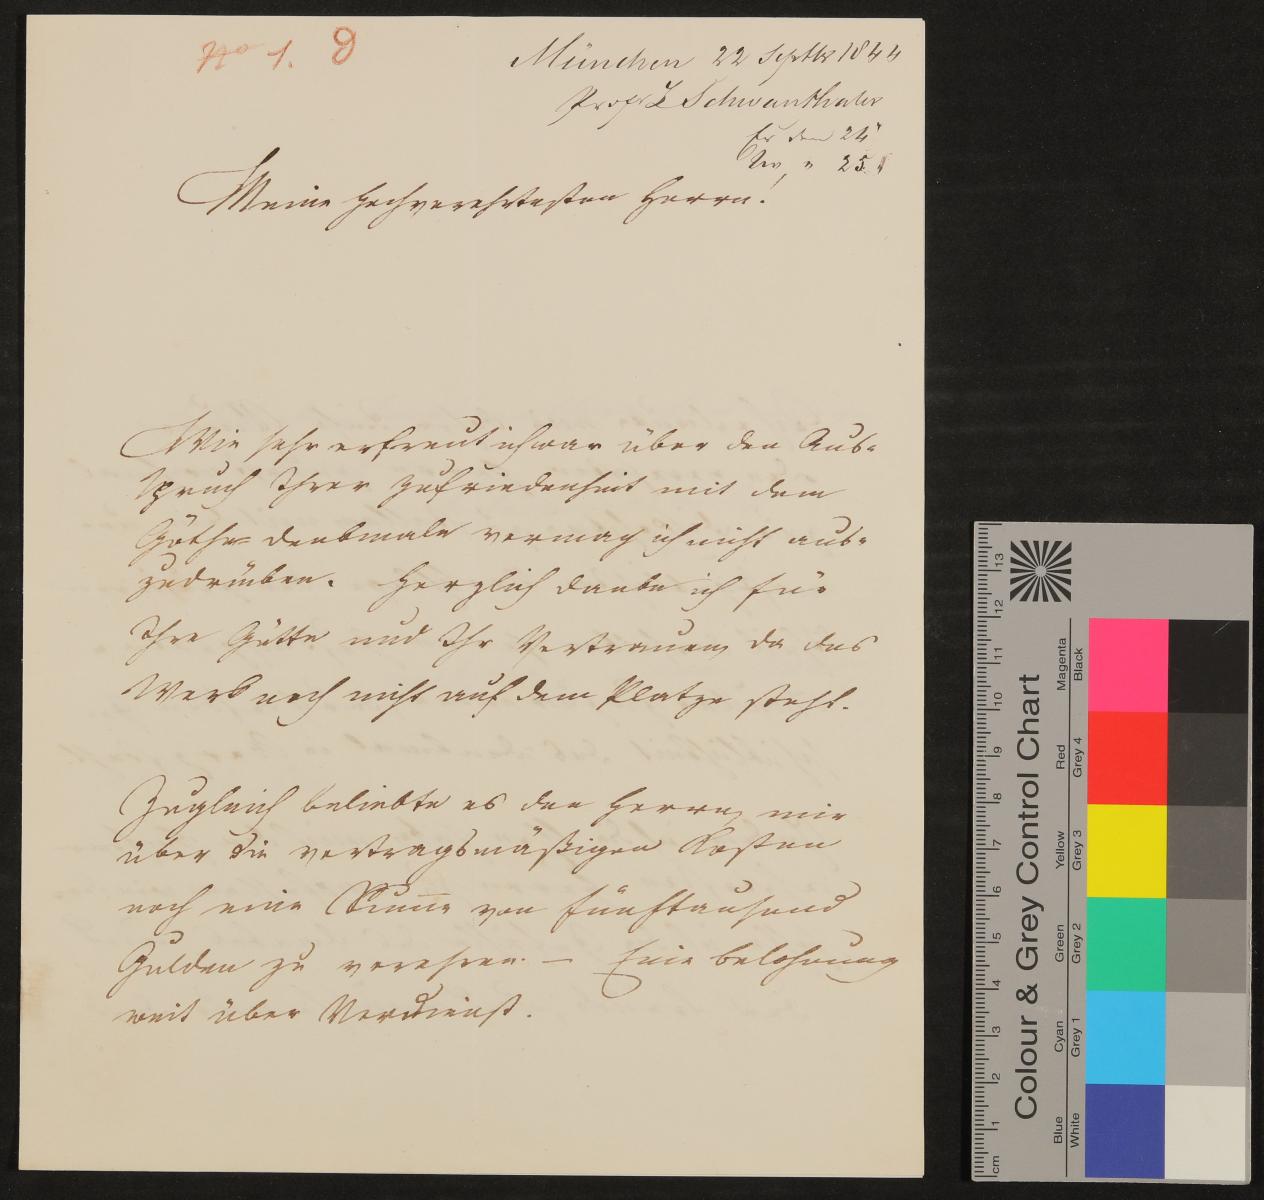 No 1. D
München 22 Septbr 1844
Profr L Schwanthaler
Er den 24"
" 25
Meine hochverehrtesten Herrn!
Wie sehr erfreut ich war über den Aus-
spruch Ihrer Zufriedenheit mit dem
Göthe-denkmale vermag ich nicht aus-
zudrüken. Herzlich danke ich für
Ihre Gütte und Ihr Vertrauen, da das
Werk noch nicht auf dem Platze steht.
Zugleich beliebte es den Herren, mir
über die vertragsmäßigen Kosten
noch eine Sum̅e von fünftausend
Gulden zu verehren. — Eine belohnung
weit über Verdienst.
cm 1 2 3 4 5 6 7 8 9 10 11 12 13
Colour & Grey Control Chart
Blue Cyan Green Yellow Red Magenta
White Grey 1 Grey 2 Grey 3 Grey 4 Black